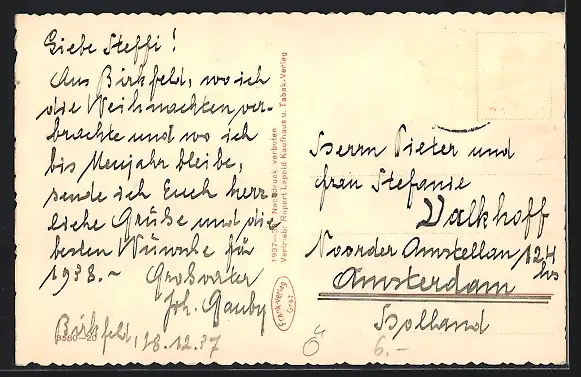 Liebe Steffi!
Aus Birkfeld, wo ich
die Weihnachten ver-
brachte und wo ich
bis Neujahr bleibe,
sende ich Euch herz-
liche Grüße und die
besten Wünsche für
1938.~ Großvater
Joh. Gauby
Birkfeld, 28.12.37
3580-20
1937 – Nachdruck verboten
Vertrieb: Rupert Lepold Kaufhaus u. Tabak-Verlag
Frankverlag
Graz
Herrn Pieter und
Frau Stefanie
Valkhoff
Noorder Amstellan 124
hs
Amsterdam
Holland
Ö
6.-